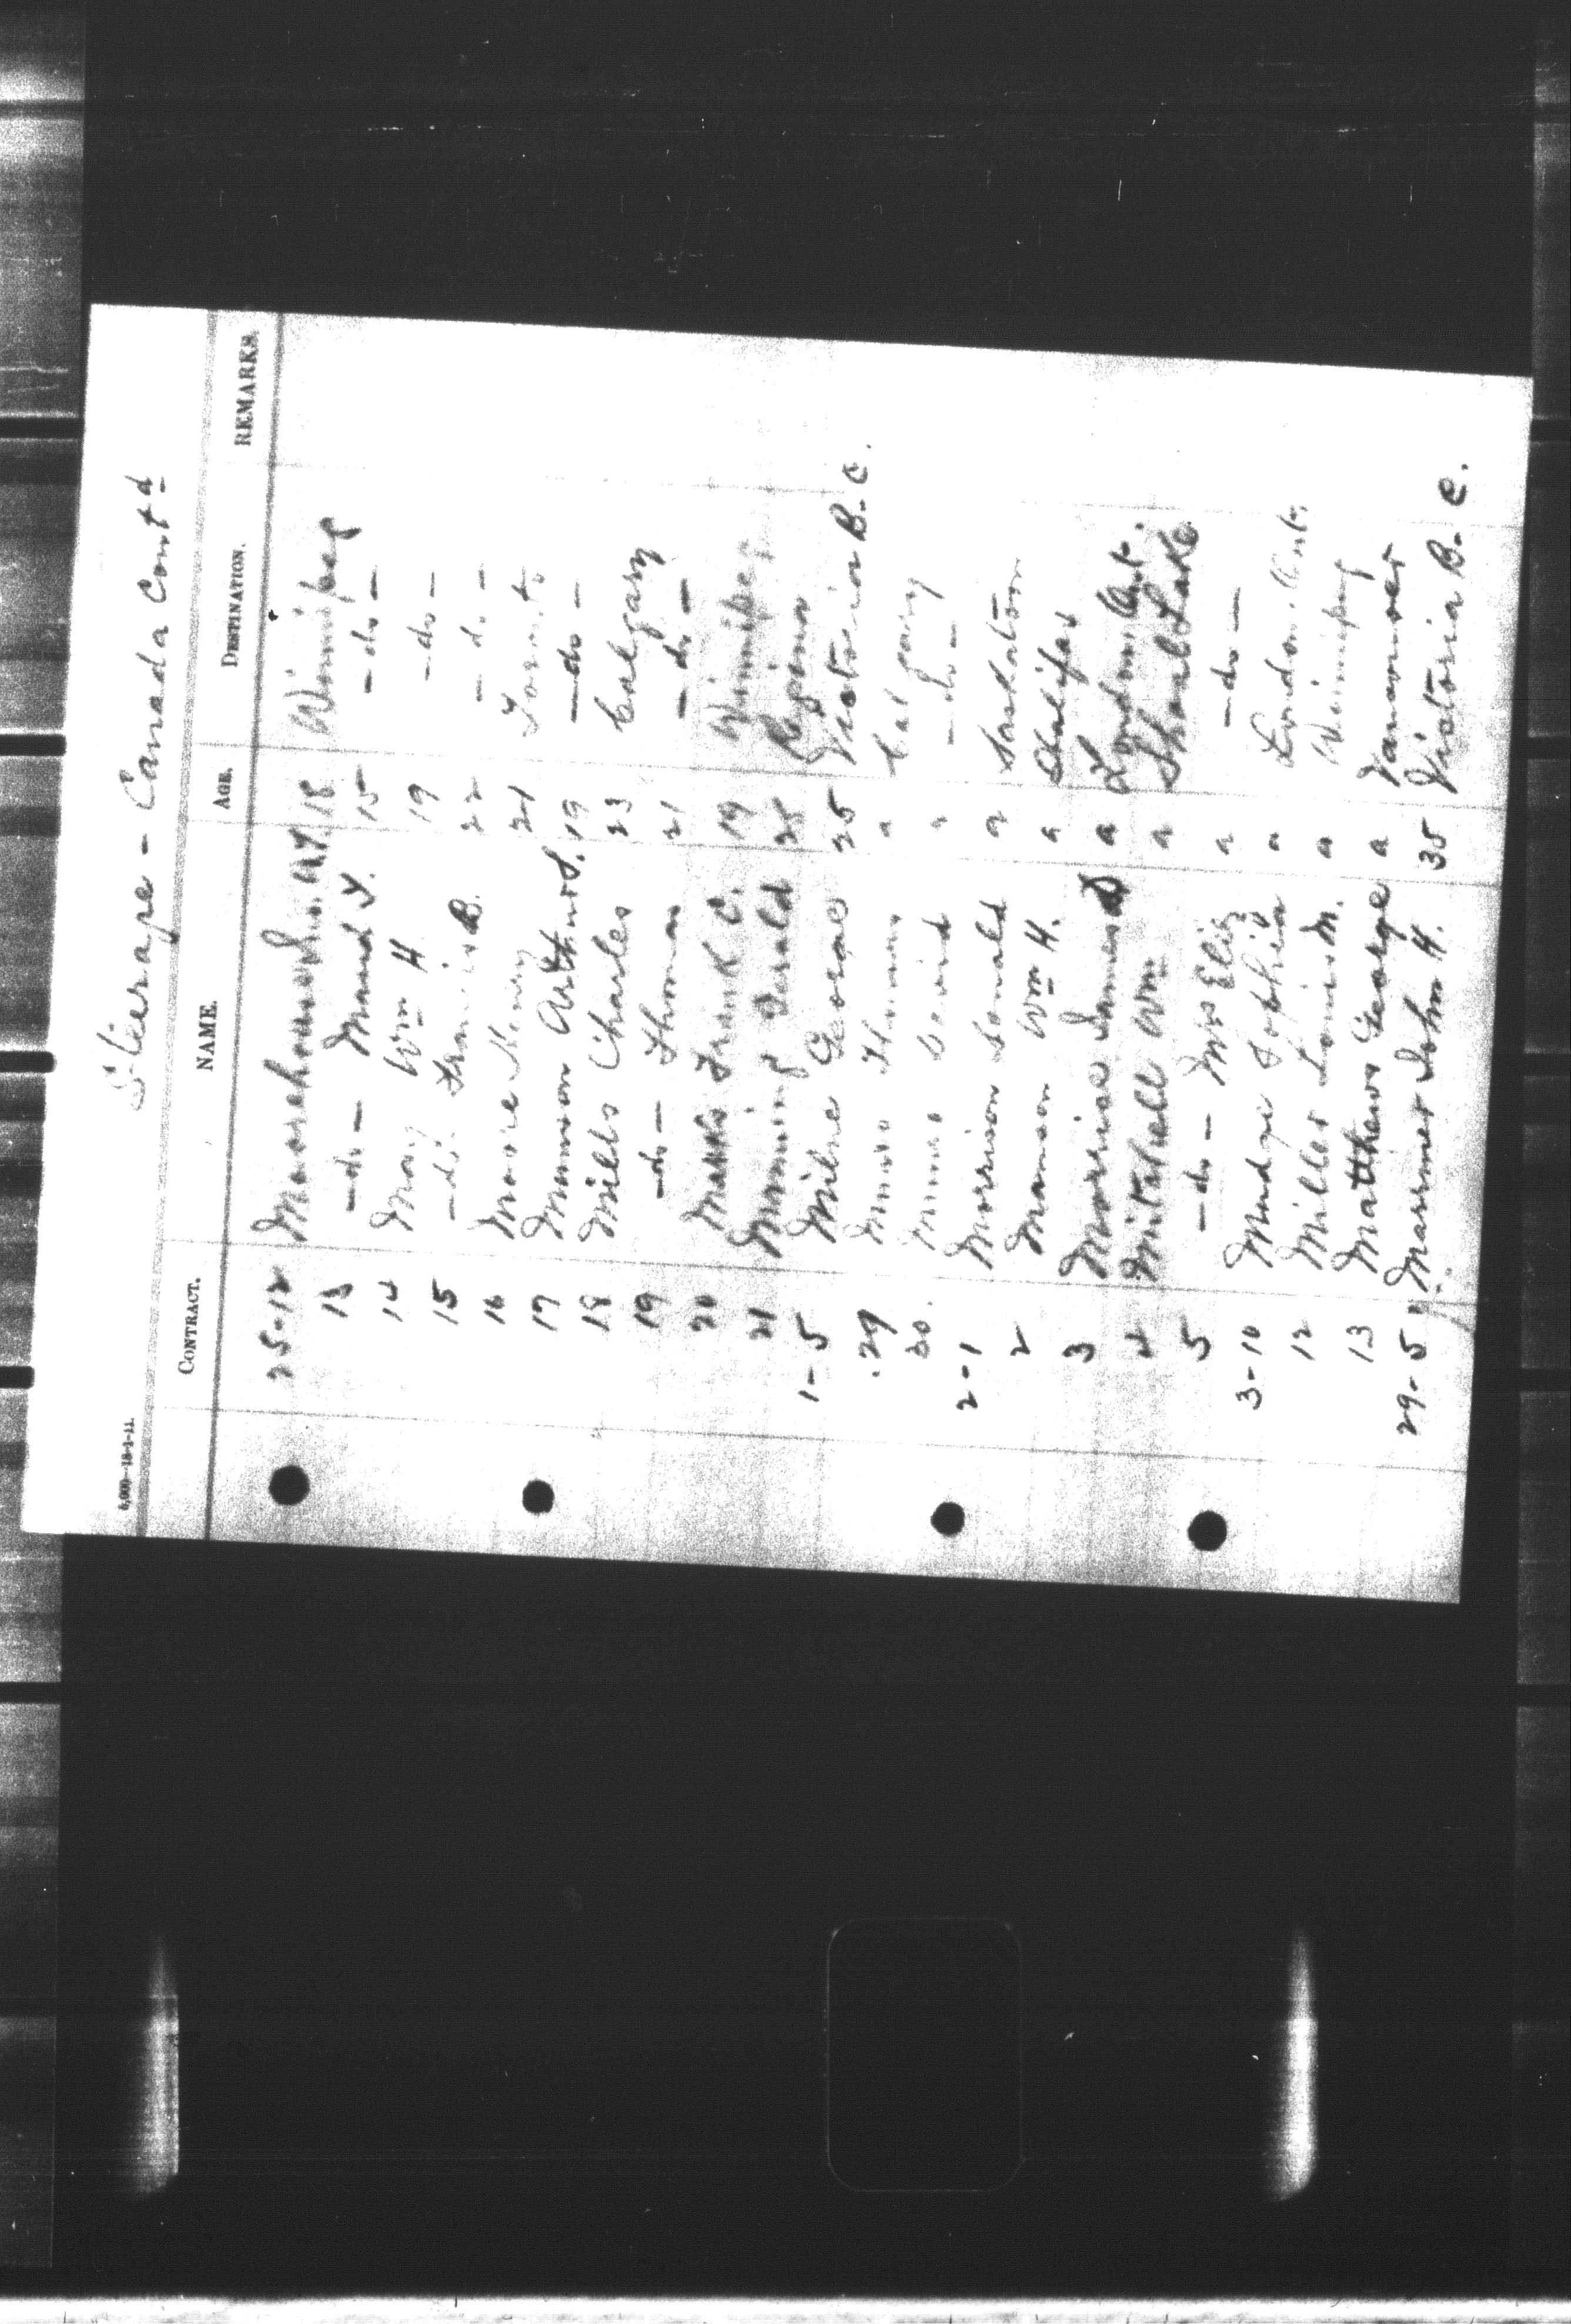 Steerage - Canada Contd
6,000-18-1-11.
CONTRACT. NAME. AGE. DESTINATION. REMARKS.
25-12 18 Winnipeg
13 -do- Maud Y. 15 -do-
14 May Wm H 19 -do-
15 -do- Francis B. 22 -do-
16 Moore Henry 21 Toronto
17 Munson Arthur S. 19 -do-
18 Mills Charles 23 Calgary
19 -do- Thomas 21 -do-
20 Marks Frank C. 19 Winnipeg
21 Manning Gerald 25 Regina
1-5 Milne George 25 Victoria B.C.
29 Munro Thomas a Calgary
30 Munro David a -do-
2-1 Morrison Donald a Saskatoon
2 Manson Wm H. a Halifax
3 Morrice James D a London Ont.
4 Mitchell Wm a Shoal Lake
5 -do- Mrs Eliz a -do-
3-10 Mudge Sophia a London Ont.
12 Miller Louis M. a Winnipeg
13 Matthews George a Vancouver
29-5 Marmer John H. 35 Victoria B.C.